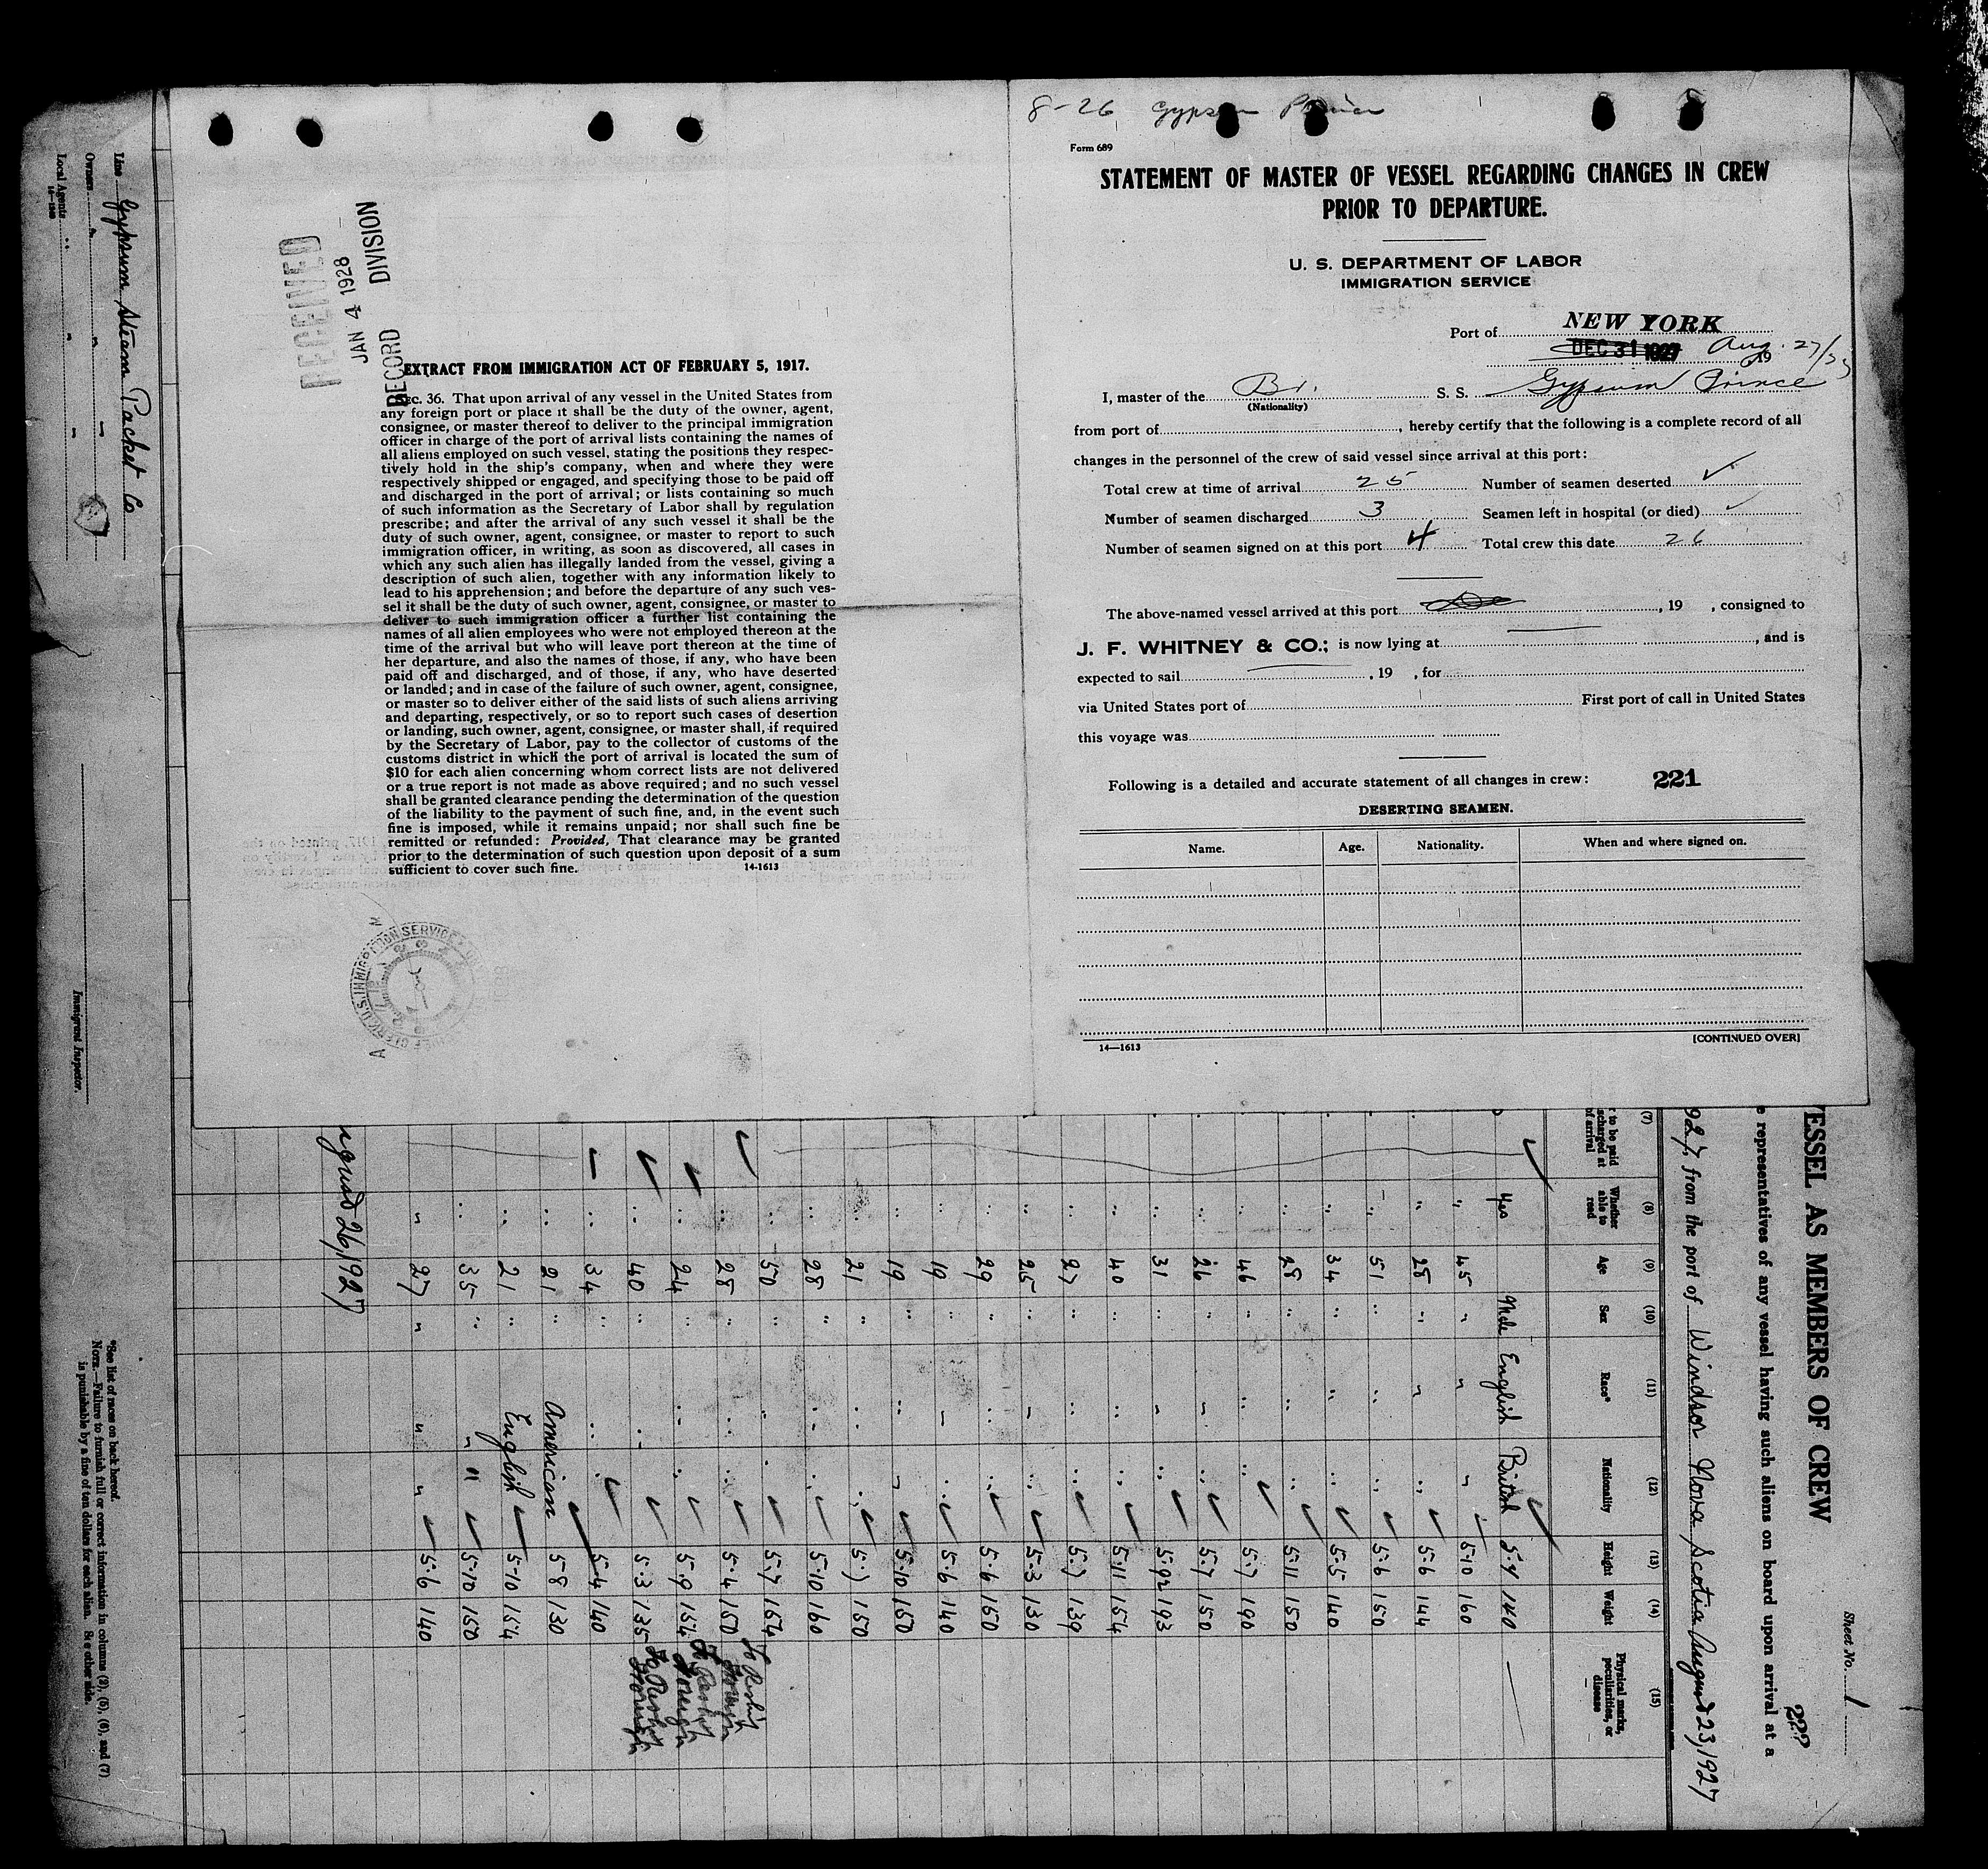 8-26 Gypsum Prince
Form 689
STATEMENT OF MASTER OF VESSEL REGARDING CHANGES IN CREW
PRIOR TO DEPARTURE.
U. S. DEPARTMENT OF LABOR
IMMIGRATION SERVICE
Port of NEW YORK
DEC 31 1927 Aug. 27/27, 19
I, master of the Br. S. S. Gypsum Prince
(Nationality)
from port of , hereby certify that the following is a complete record of all
changes in the personnel of the crew of said vessel since arrival at this port:
Total crew at time of arrival 25 Number of seamen deserted ✓
Number of seamen discharged 3 Seamen left in hospital (or died) ✓
Number of seamen signed on at this port 4 Total crew this date 26
The above-named vessel arrived at this port , 19 , consigned to
J. F. WHITNEY & CO.; is now lying at , and is
expected to sail , 19 , for
via United States port of First port of call in United States
this voyage was
Following is a detailed and accurate statement of all changes in crew: 221
DESERTING SEAMEN.
Name. Age. Nationality. When and where signed on.
14—1613 [CONTINUED OVER]
RECEIVED
JAN 4 1928
RECORD DIVISION
EXTRACT FROM IMMIGRATION ACT OF FEBRUARY 5, 1917.
Sec. 36. That upon arrival of any vessel in the United States from
any foreign port or place it shall be the duty of the owner, agent,
consignee, or master thereof to deliver to the principal immigration
officer in charge of the port of arrival lists containing the names of
all aliens employed on such vessel, stating the positions they respec-
tively hold in the ship's company, when and where they were
respectively shipped or engaged, and specifying those to be paid off
and discharged in the port of arrival; or lists containing so much
of such information as the Secretary of Labor shall by regulation
prescribe; and after the arrival of any such vessel it shall be the
duty of such owner, agent, consignee, or master to report to such
immigration officer, in writing, as soon as discovered, all cases in
which any such alien has illegally landed from the vessel, giving a
description of such alien, together with any information likely to
lead to his apprehension; and before the departure of any such ves-
sel it shall be the duty of such owner, agent, consignee, or master to
deliver to such immigration officer a further list containing the
names of all alien employees who were not employed thereon at the
time of the arrival but who will leave port thereon at the time of
her departure, and also the names of those, if any, who have been
paid off and discharged, and of those, if any, who have deserted
or landed; and in case of the failure of such owner, agent, consignee,
or master so to deliver either of the said lists of such aliens arriving
and departing, respectively, or so to report such cases of desertion
or landing, such owner, agent, consignee, or master shall, if required
by the Secretary of Labor, pay to the collector of customs of the
customs district in which the port of arrival is located the sum of
$10 for each alien concerning whom correct lists are not delivered
or a true report is not made as above required; and no such vessel
shall be granted clearance pending the determination of the question
of the liability to the payment of such fine, and, in the event such
fine is imposed, while it remains unpaid; nor shall such fine be
remitted or refunded: Provided, That clearance may be granted
prior to the determination of such question upon deposit of a sum
sufficient to cover such fine.
14-1613
U.S. IMMIGRATION SERVICE
Sheet No. 1
VESSEL AS MEMBERS OF CREW
e representatives of any vessel having such aliens on board upon arrival at a
927, from the port of Windsor Nova Scotia August 23, 1927
(7) (8) (9) (10) (11) (12) (13) (14) (15)
to be paid scharged at of arrival
Whether able to read
Age
Sex
Race*
Nationality
Height
Weight
Physical marks, peculiarities, or disease
yes Male English British 5-4 140
" 45 " " " 5-10 160
" 28 " " " 5-6 144
" 51 " " " 5-6 150
" 34 " " " 5-5 140
" 28 " " " 5-11 150
" 46 " " " 5-7 190
" 26 " " " 5-7 150
" 31 " " " 5-9½ 193
" 40 " " " 5-11 154
" 27 " " " 5-7 139
" 25 " " " 5-3 130
" 29 " " " 5-6 150
" 19 " " " 5-6 140
" 19 " " " 5-10 150
" 21 " " " 5-7 150
" 28 " " " 5-10 160
" 50 " " " 5-7 154
" 28 " " " 5-4 150
" 24 " " " 5-9 154
" 40 " " " 5-3 135
" 34 " " " 5-4 140
" 21 " American 5-8 130
" 21 " English 5-10 154
" 35 " " " 5-10 150
" 27 " " " 5-6 140
ugust 26, 1927
*See list of races on back hereof.
Note.—Failure to furnish full or correct information in columns (2), (5), (6), and (7)
is punishable by a fine of ten dollars for each alien. See other side.
Line Gypsum Steam Packet Co
Owners " " " "
Local Agents " " "
Immigrant Inspector.